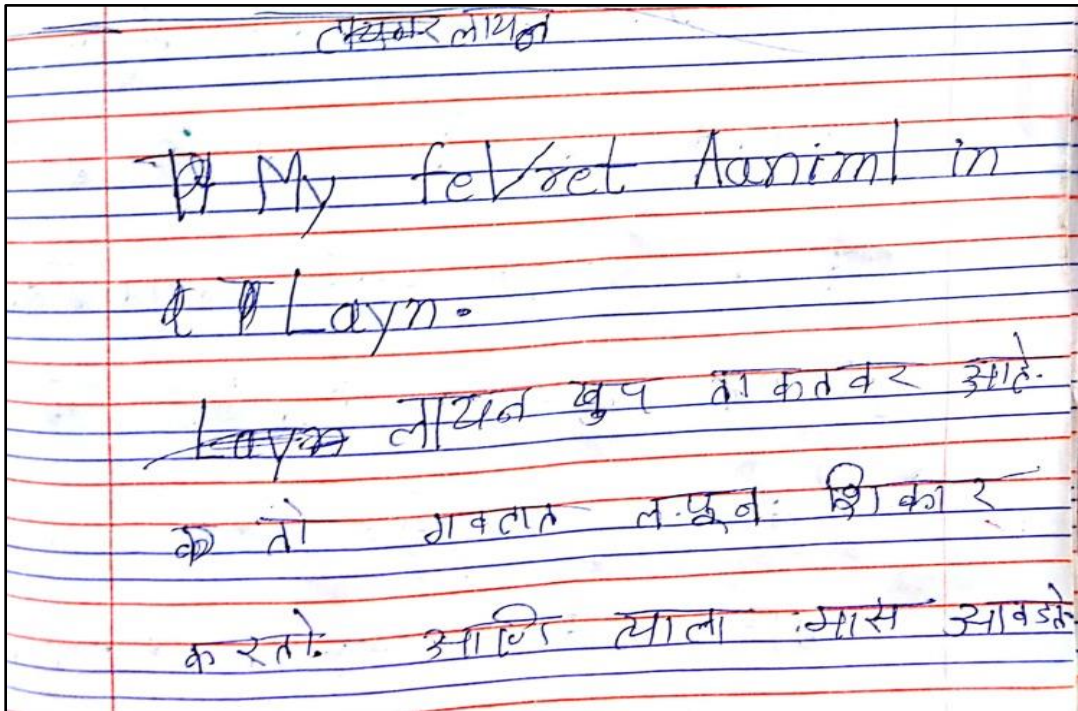 टायगर लायन
My feVret Aaniml in
Layn.
Layn लायन खुप ताकतवर आहे.
क तो गवतात लपून शिकार
करतो. आणि त्याला मास आवडते.